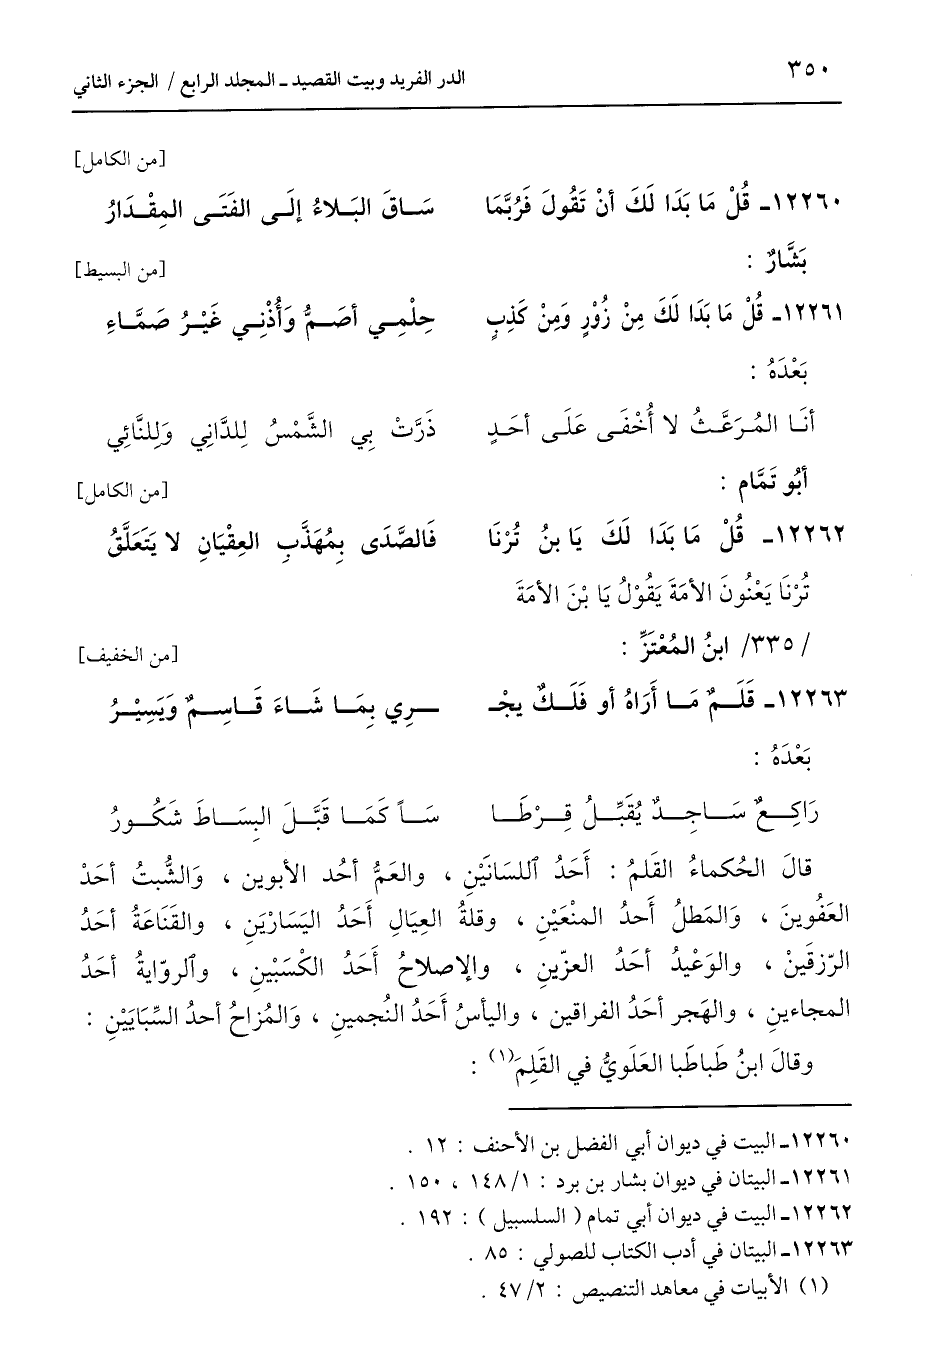 ٣٥٠ الدر الفريد وبيت القصيد ـ المجلد الرابع / الجزء الثاني
[من الكامل]
١٢٢٦٠ـ قُلْ مَا بَدَا لَكَ أنْ تَقُولَ فَرُبَّمَا سَاقَ البَلاءُ إلَى الفَتَى المِقْدَارُ
بَشَّارٌ : [من البسيط]
١٢٢٦١ـ قُلْ مَا بَدَا لَكَ مِنْ زُوْرٍ وَمِنْ كَذِبٍ حِلْمِي أصَمُّ وَأُذْنِي غَيْرُ صَمَّاءِ
بَعْدَهُ :
أنَا المُرَعَّثُ لا أُخْفَى عَلَى أحَدٍ ذَرَّتْ بِي الشَّمْسُ لِلدَّانِي وَلِلنَّائِي
أبُو تَمَّام : [من الكامل]
١٢٢٦٢ـ قُلْ مَا بَدَا لَكَ يَا بنُ تُرْنَا فَالصَّدَى بِمُهَذَّبِ العِقْيَانِ لا يَتَعَلَّقُ
تُرْنَا يَعْنُونَ الأمَةَ يَقُوْلُ يَا بْنَ الأمَةَ
/ ٣٣٥/ ابنُ المُعْتَزِّ : [من الخفيف]
١٢٢٦٣ـ قَلَـمٌ مَـا أَرَاهُ أو فَلَـكٌ يجْـ ـرِي بِمَـا شَـاءَ قَـاسِـمٌ وَيَسِيْـرُ
بَعْدَهُ :
رَاكِـعٌ سَـاجِـدٌ يُقَبِّـلُ قِـرْطَـا سَـاً كَمَـا قَبَّـلَ البِسَـاطَ شَكُـورُ
قالَ الحُكماءُ القَلمُ : أَحَدُ اللسَانَيْنِ ، والعَمُّ أحُد الأبوين ، وَالشُّبتُ أحَدْ
العَفُوينَ ، وَالمَطلُ أحدُ المنْعَيْنِ ، وقلةُ العِيَالِ أَحَدُ اليَسَارَيَنِ ، والقَنَاعَةُ أحَدُ
الرّزقَينْ ، والوَعْيدُ أحَدُ العزّينِ ، والإصلاحُ أَحَدُ الكْسَبْينِ ، والروّايةُ أحَدُ
المجاءينِ ، والهَجر أحَدُ الفراقين ، واليأسُ أَحَدُ النُجمين ، وَالمُزاحُ أحدُ السِّبَابَيْنِ :
وقالَ ابنُ طَباطَبا العَلَويُّ في القَلِمَ(١) :
١٢٢٦٠ـ البيت في ديوان أبي الفضل بن الأحنف : ١٢ .
١٢٢٦١ـ البيتان في ديوان بشار بن برد : ١/ ١٤٨ ، ١٥٠ .
١٢٢٦٢ـ البيت في ديوان أبي تمام ( السلسبيل ) : ١٩٢ .
١٢٢٦٣ـ البيتان في أدب الكتاب للصولي : ٨٥ .
(١) الأبيات في معاهد التنصيص : ٢/ ٤٧ .